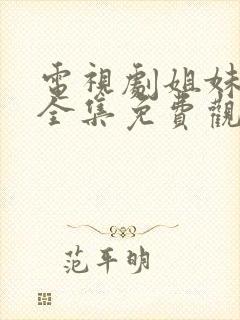 電視劇姐妹
全集免費觀
范平明